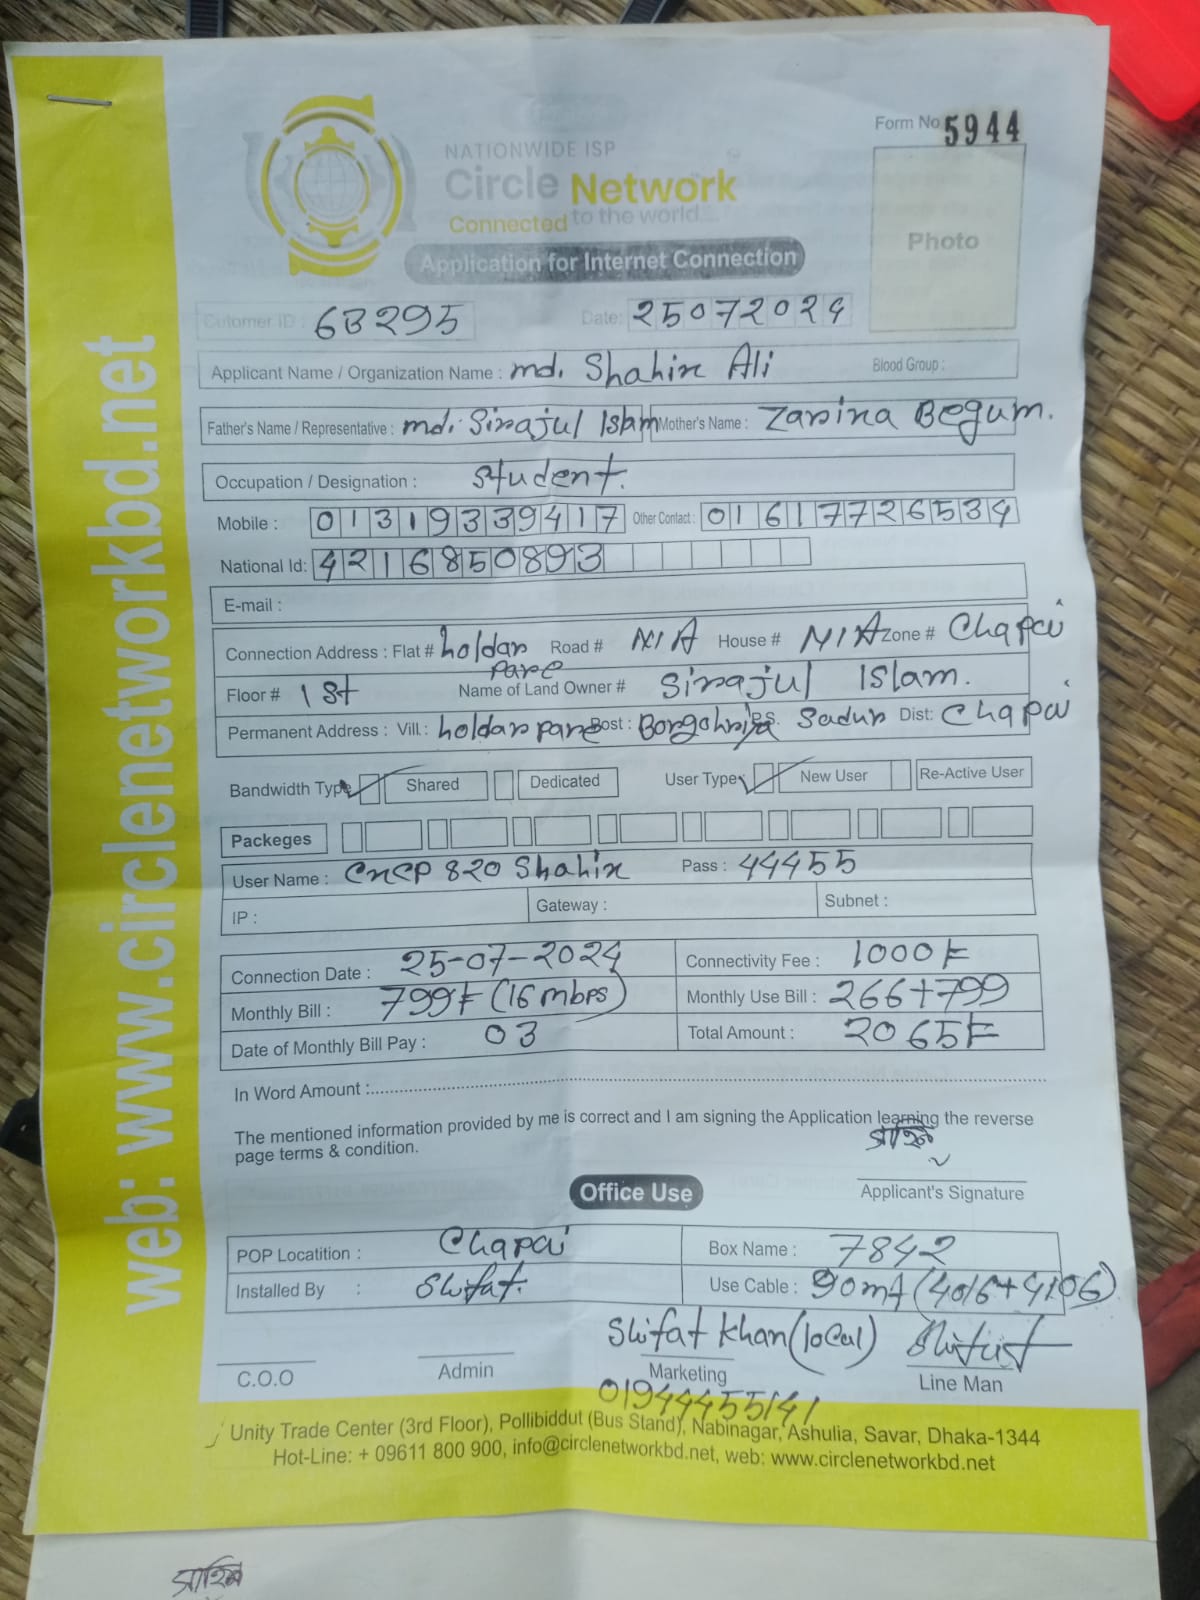 Form No 5944
NATIONWIDE ISP
Circle Network
Connected to the world
Photo
Application for Internet Connection
Cutomer ID : 63295 Date: 25072024
Applicant Name / Organization Name : md. Shahin Ali Blood Group :
Father's Name / Representative : md. Sirajul Islam Mother's Name : Zarina Begum.
Occupation / Designation : Student.
Mobile : 01319339417 Other Contact : 01617726534
National Id: 4216850893
E-mail :
Connection Address : Flat # holdar pare Road # N/A House # N/A Zone # Chapai
Floor # 1st Name of Land Owner # Sirajul Islam.
Permanent Address : Vill.: holdarpare Post : P.S. Sadur Dist: Chapai
Bandwidth Type Shared Dedicated User Type New User Re-Active User
Packeges
User Name : CNCP 820 Shahin Pass : 44455
IP : Gateway : Subnet :
Connection Date : 25-07-2024 Connectivity Fee : 1000৳
Monthly Bill : 799৳ (16 mbps) Monthly Use Bill : 266+799
Date of Monthly Bill Pay : 03 Total Amount : 2065৳
In Word Amount :
The mentioned information provided by me is correct and I am signing the Application learning the reverse
page terms & condition.
Applicant's Signature
Office Use
POP Locatition : Chapai Box Name : 7842
Installed By : Shifat. Use Cable : 90m
Shifat Khan (local)
C.O.O Admin Marketing Line Man
01944455141
Unity Trade Center (3rd Floor), Pollibiddut (Bus Stand), Nabinagar, Ashulia, Savar, Dhaka-1344
Hot-Line: + 09611 800 900, info@circlenetworkbd.net, web: www.circlenetworkbd.net
web: www.circlenetworkbd.net